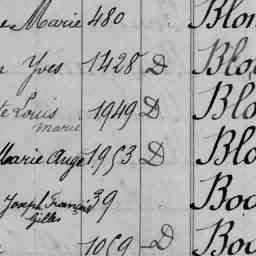 e Marie 480 Blon
n Yves 1428 D Blo
te Louis 1949 D Blo
marie
Marie Ange 1953 D Blo
Joseph François 39 Boo
Gilles
1059 D Boo